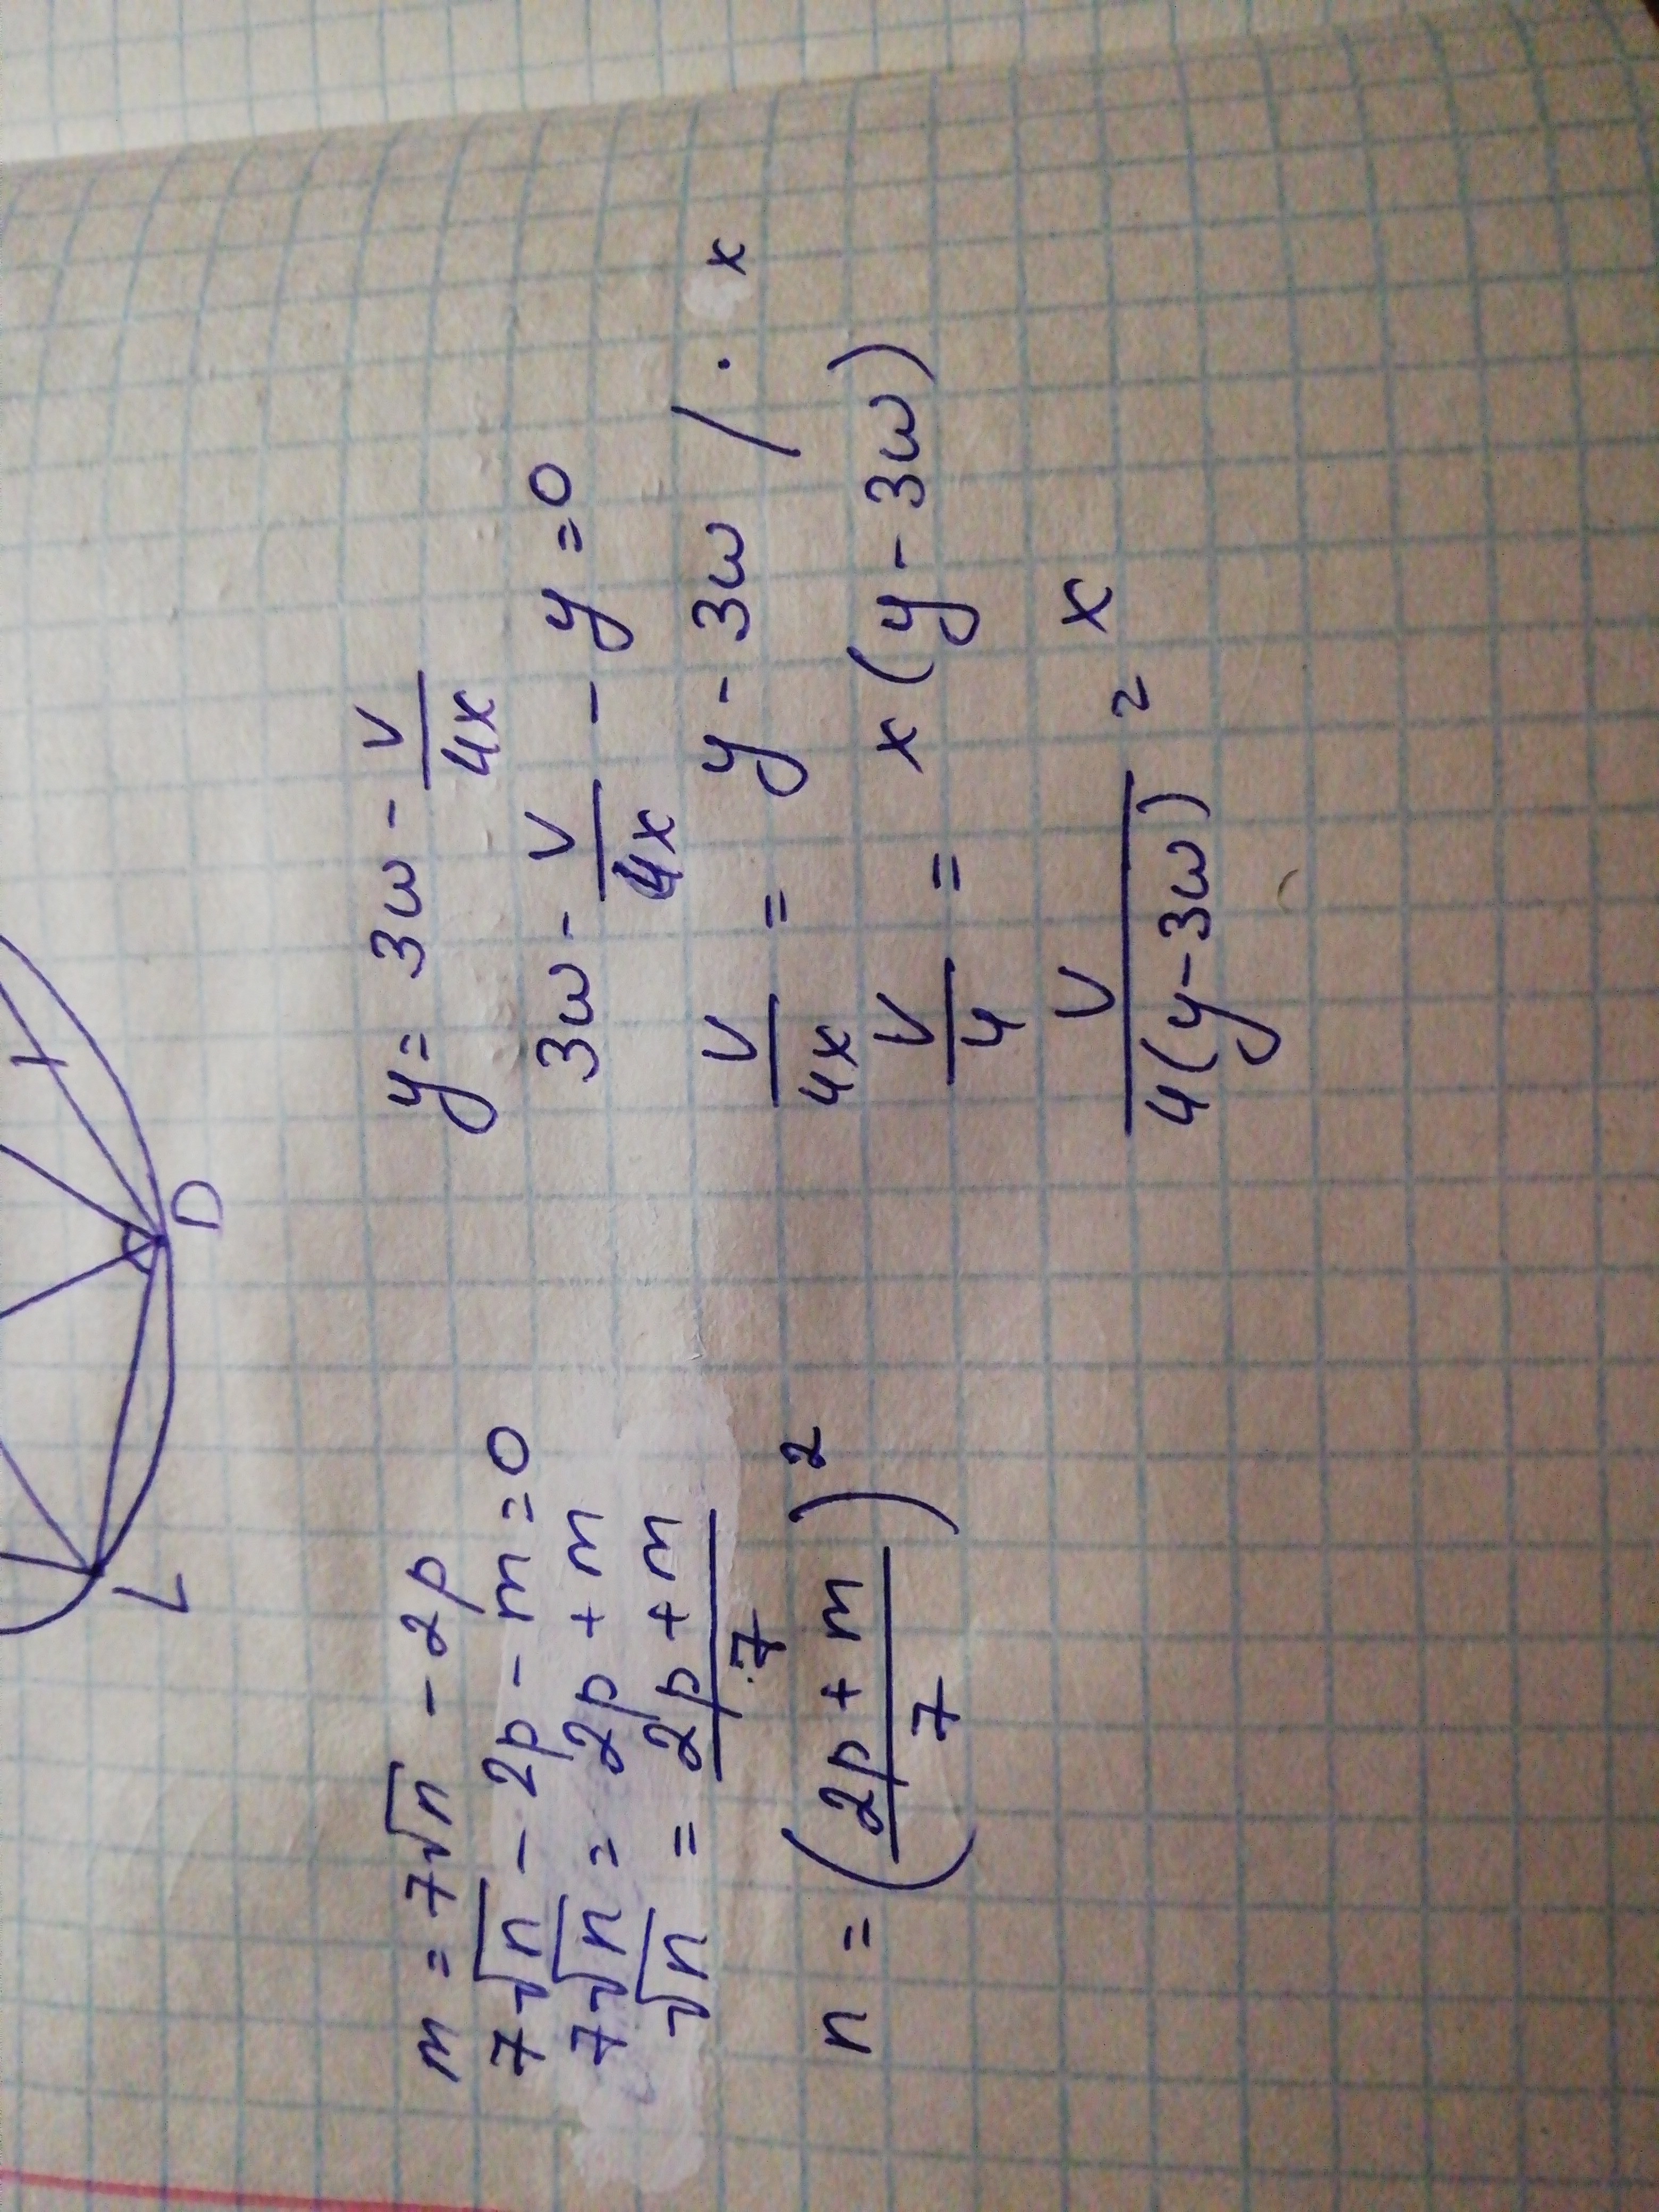 L
D
m = 7√n - 2p
7√n - 2p - m = 0
7√n = 2p + m
√n = (2p + m)/7
n = ((2p + m)/7)²
y = 3w - v/4x
3w - v/4x - y = 0
v/4x = y - 3w / · x
v/4 = x (y - 3w)
v/4(y - 3w) = x